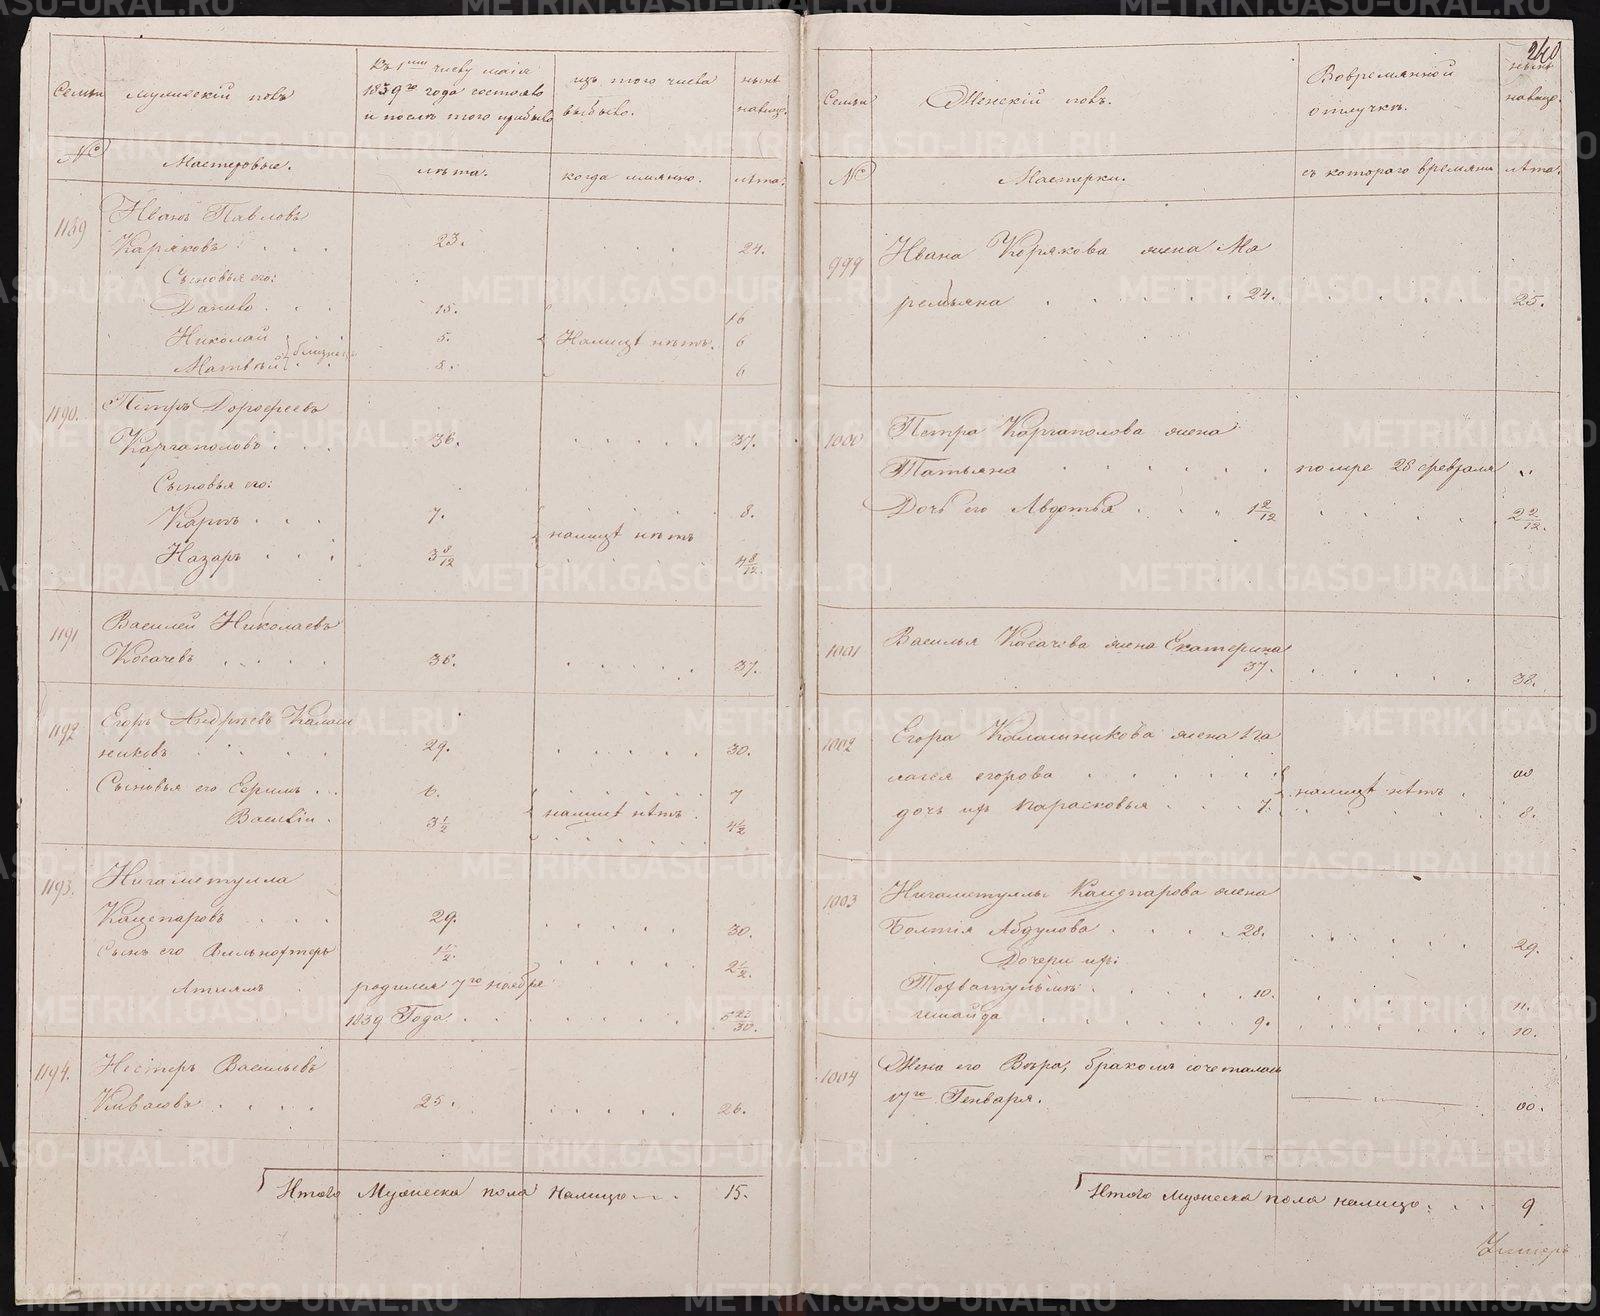 240
Семьи
мужескій полъ
Къ 1му числу маія
1839го года состояло
и послѣ того прибыло
изъ того числа
выбыло.
нынѣ
налицо.
№
Мастеровые.
лѣта.
когда имянно.
лѣта.
1189
Иванъ Павловъ
Каряковъ . . . 23. . . . . 24.
Сыновья его:
Данило . . . 15. 16
Николай близнецы 5. Налицѣ нѣтъ. 6
Матвѣй 5. 6
1190. Петръ Дорофеевъ
Каргаполовъ . . . 36. . . . . . 37.
Сыновья его:
Карпъ . . . 7. 8.
налицѣ нѣтъ
Назаръ . . . 3 8/12 4 8/12.
1191 Василей Николаевъ
Косачевъ . . . . 36. . . . . . 37.
1192 Егоръ Андреевъ Калаш
никовъ . . . . 29. . . . . . 30.
Сыновья его Ефримъ . . 6. 7
Василіи . 3 1/2 налицѣ нѣтъ. 4 1/2
1193. Нигаметулла
Кащепаровъ . . . . 29. . . . . . 30.
Сынъ его 1 1/2. . . . . . 2 1/2.
родился 7го ноября
1839 Года . . . . . . . 5 22/30.
1194. Нестеръ Васильевъ
25. . . . . . 26.
Итого Мужеска пола налицо . . . 15.
Семьи
Женскій полъ.
Вовремянной
отлучкѣ.
нынѣ
налицо.
№
Мастерки.
съ котораго времяни
лѣта.
999 Ивана Корякова жена Ма
ремьяна . . . . . . 24. . . . . . 25.
1000 Петра Каргаполова жена
Татьяна . . . . . . помре 28 февраля „
Дочь его Авдотья . . . . 1 2/12 . . . . . 2 2/12.
1001 Василья Касачева жена Екатерина
37. . . . . . 38.
1002 Егора Калашникова жена Па
лагея егорова . . . . . . 00
налицѣ нѣтъ .
дочь ихъ Парасковья . . . 7. . . . . . 8.
1003 Нигаметуллы Кащепарова жена
Абдулова . . . . 28. . . . . . 29.
Дочери ихъ:
. . . . . 10. . . . . . 11.
. . . . . 9. . . . . . 10.
1004 Жена его Вѣра, бракомъ сочеталась
17го Генваря. 00.
Итого Мужеска пола налицо . . . 9